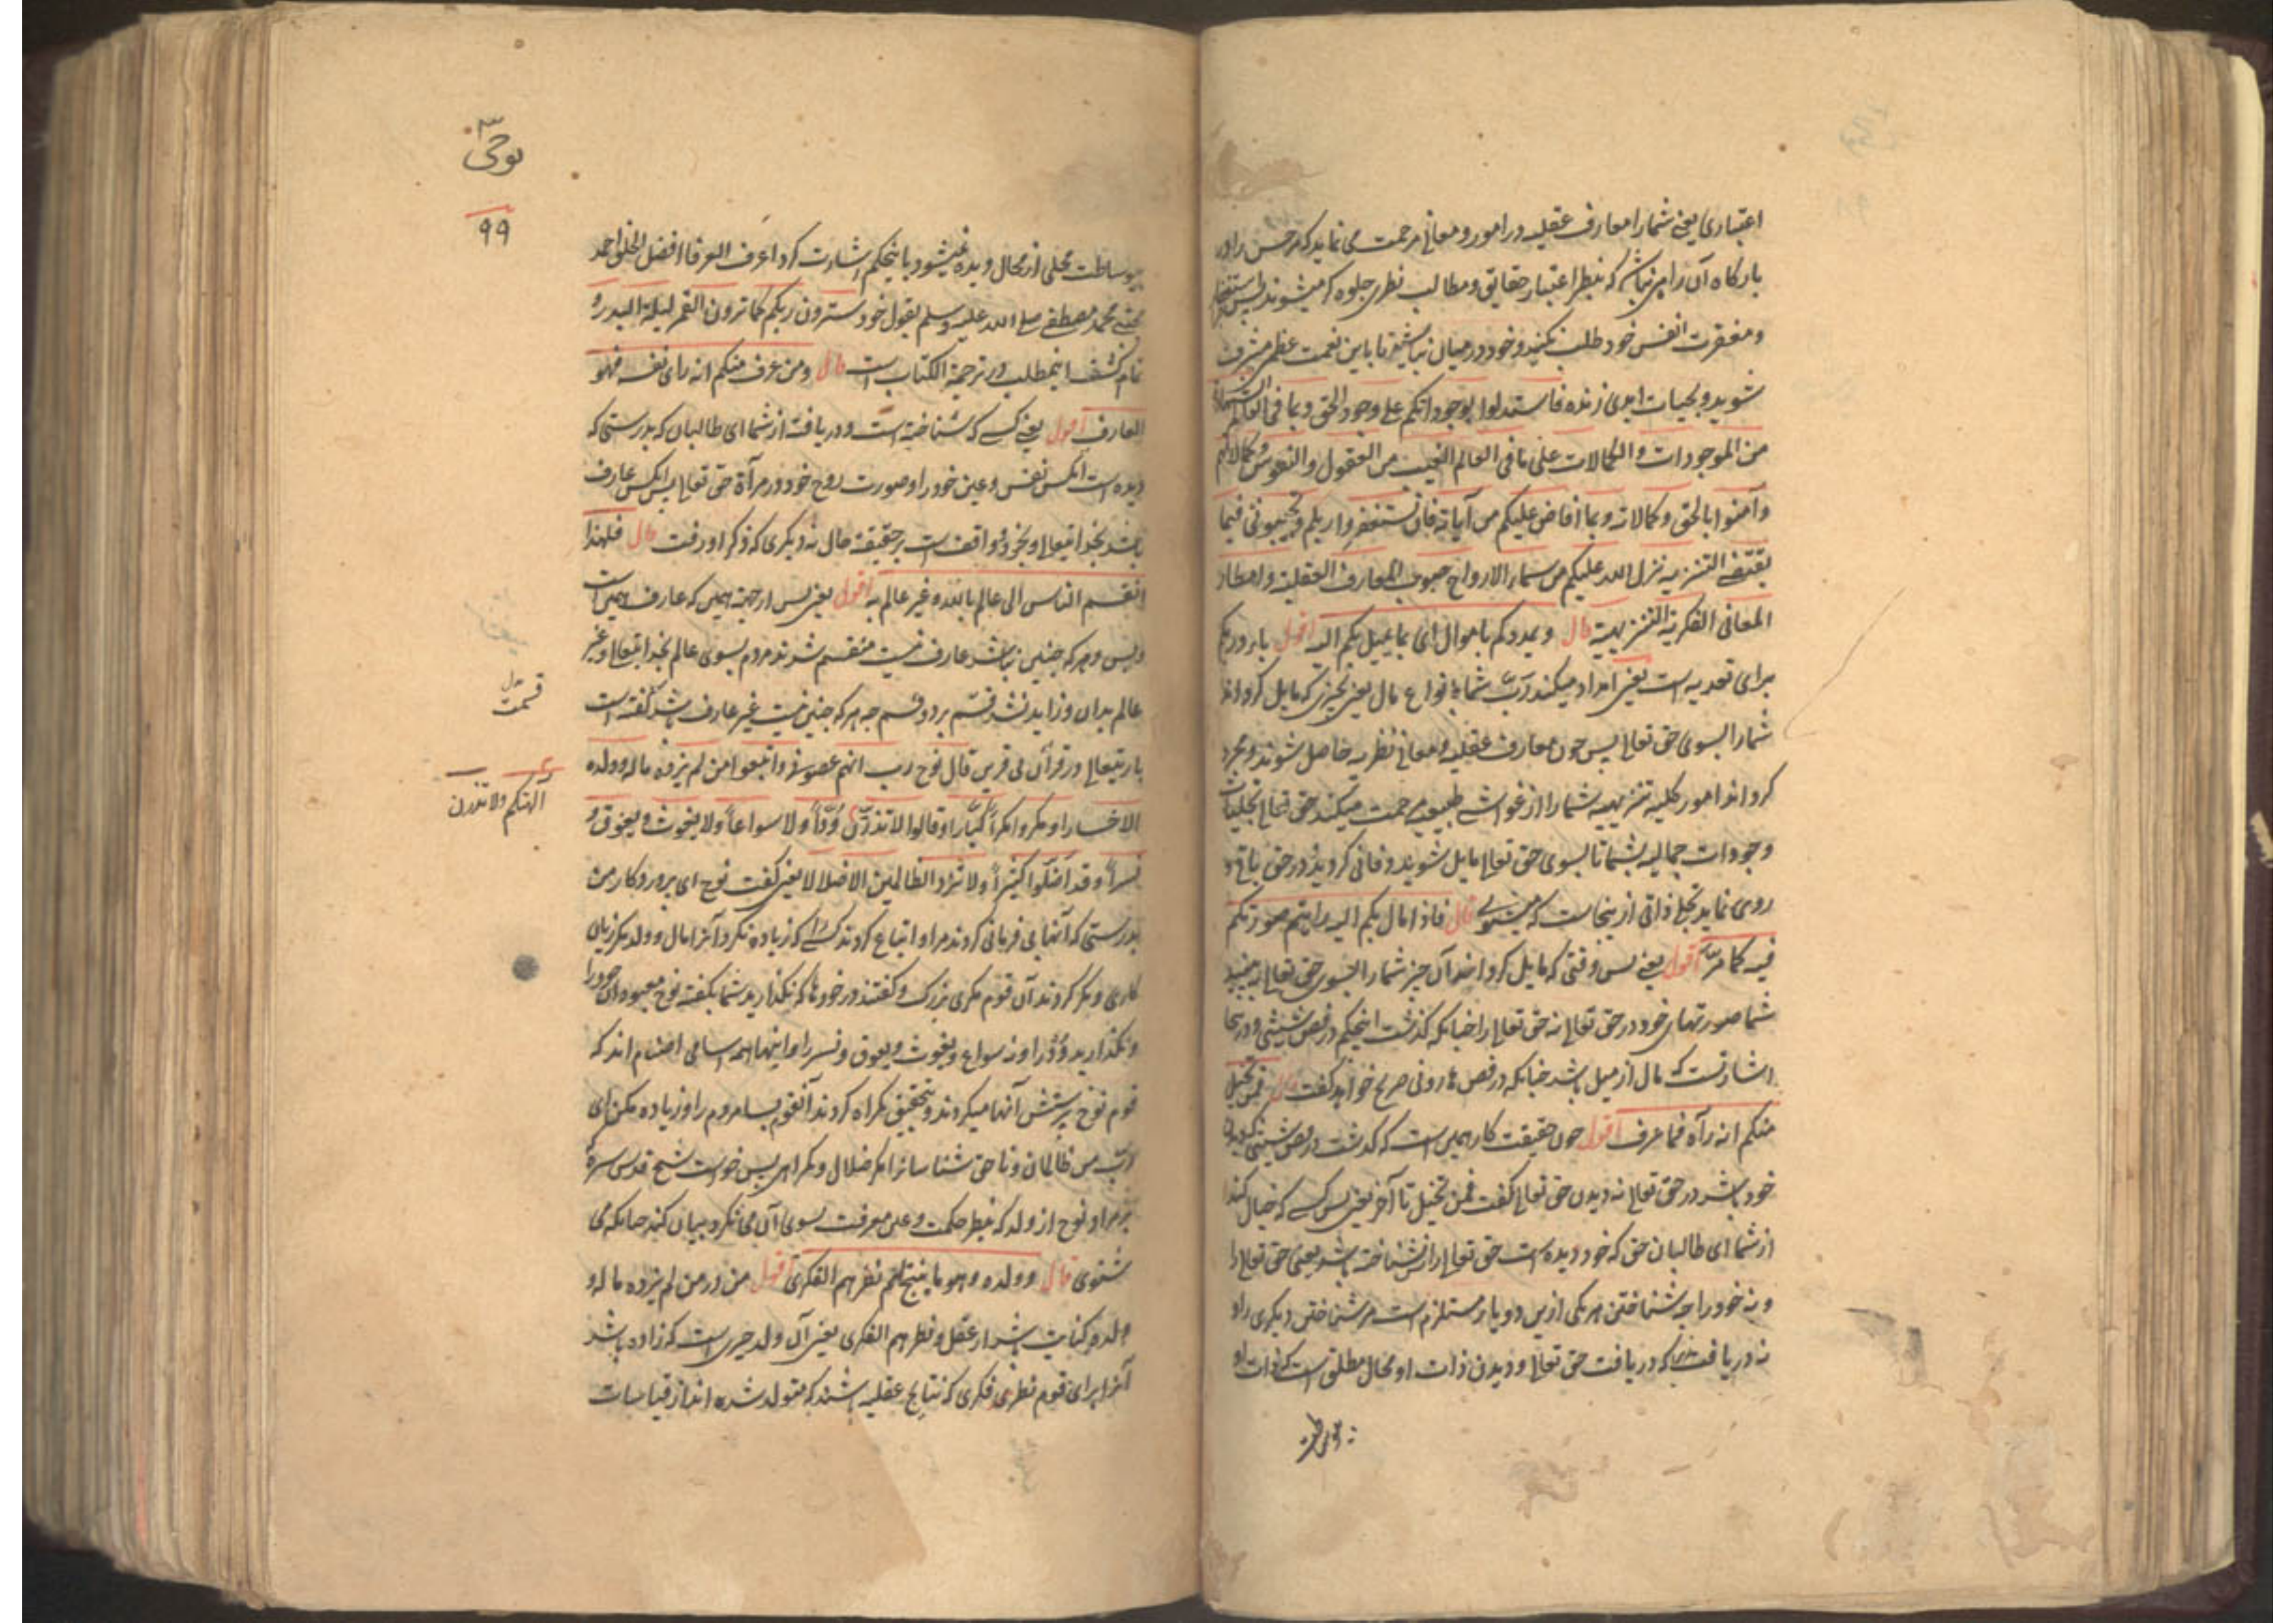 اعتباری یعنی شما را معارف عقلیه در امور و معانی مرحمت می نماید که هر حس را در
بارگاه آن رامی نباشد که بنظر اعتبار حقایق و مطالب نظری جلوه گر میشوند پس ستغفار
و مغفرت انفس خود طلب بکنید و خود در میان نباشید تا باین نعمت عظمی مشرف
شوید و بحیات ابدی زنده فاستدلوا بوجوداتکم علی وجود الحق و بما فی العالم الشهادة
من الموجودات و الکمالات علی ما فی العالم الغیب من العقول و النفوس و کمالاتهم
و آمنوا بالحق و کمالاته و بما افاض علیکم من آیاته فان تستغفروا ربکم و تجیبونی فیما
یقتضی التنزیه نزل الله علیکم من سماء الارواح حبوب المعارف العقلیة و امطار
المعانی الفکریة التنزیهیة قال و یمددکم باموال ای بما یمیل بکم الیه اقول با در بکم
برای تعدیه است یعنی امداد میکند رب شما بانواع مال یعنی بچیزی که مایل گرداند
شما را بسوی حق تعالی پس چون معارف عقلیه و معانی نظریه حاصل شوند و مجرد
گرداند امور کلیه تنزیهیه شما را از غواشی طبیعیه مرحمت میکند حق تعالی تجلیات
وجودات جمالیه بشما تا بسوی حق تعالی مایل شوید و فانی گردید در حق باقی و
روی نماید تجلی ذاتی از ینجاست که میشنوی قال فاذا مال بکم الیه رایتم صورتکم
فیه کما مر اقول یعنی پس وقتی که مایل گرداند آن چیز شما را بسوی حق تعالی ببینید
شما صورتهای خود در حق تعالی نه حق تعالی را چنانکه گذشت اینحکم در فص شیثی و در ینجا
اشارتست که مال از میل باشد چنانکه در فص هارونی صریح خواهد گفت قال فمن تخیل
منکم انه رآه فما عرف اقول چون حقیقت کار همین است که گذشت در فص شیثی که دیدن
خود باشد در حق تعالی نه دیدن حق تعالی گفت فمن تخیل تا آخر یعنی پس کسی که خیال کند
از شما ای طالبان حق که خود دیده است حق تعالی را پس نشناخته باشد یعنی حق تعالی را
و نه خود را چه شناختن هر یکی ازین دو یار مستلزم است مر شناختن دیگری را و
نه دریافت که دریافت حق تعالی و دیدن ذات او محال مطلق است که ذات او
بوساطت
نوحی
۹۹
بوساطت مجلی از مجال دیده نمیشود باینحکم اشارت کرد اعرف العرفا افضل الخلق احمد
مجتبی محمد مصطفی صلی الله علیه وسلم بقول خود سترون ربکم کما ترون القمر لیلة البدر و
تمام کشف اینمطلب در ترجمة الکتاب است قال و من عرف منکم انه رای نفسه فهو
العارف اقول یعنی کسی که شناخته است و دریافت از شما ای طالبان که بدرستی که
دیده است آنکس نفس و عین خود را و صورت روح خود در مرآة حق تعالی پس آنکس عارف
باشد بخدا تعالی و بخود و واقف است بر حقیقت حال نه دیگری که ذکر او رفت قال فلهذا
انقسم الناس الی عالم بالله و غیر عالم به اقول یعنی پس از جهة همین که عارف همین است
و بس و هر که چنین نباشد عارف نیست منقسم شدند مردم بسوی عالم بخدا تعالی و غیر
عالم بدان و زاید نشد قسم بر دو قسم چه هر که چنین نیست غیر عارف باشد گفته است
باریتعالی در قرآن قال نوح رب انهم عصونی و اتبعوا من لم یزده ماله و ولده
الا خسارا و مکروا مکرا کبارا و قالوا لا تذرن ودا و لا سواعا و لا یغوث و یعوق و
نسرا و قد اضلوا کثیرا و لا تزد الظالمین الا ضلالا یعنی گفت نوح ای پروردگار من
بدرستی که آنها بی فرمانی کردند مرا و اتباع کردند کسی را که زیاده نکرد آنرا مال و ولد مگر زیان
کاری و مکر کردند آن قوم مکری بزرگ و گفتند در خودها که نگذارید شما بگفته نوح معبودان خود را
و نگذارید ود را و نه سواع و یغوث و یعوق و نسر را و اینها همه اسامی اصنام اند که
قوم نوح پرستش آنها میکردند و بتحقیق گمراه کردند آنقوم بسا مردم را و زیاده مکن ای
رب من ظالمان و ناحق شناسانرا مگر ضلال و گمراهی پس خواست شیخ قدس سره
که مراد نوح از ولد که بنظر حکمت و علم معرفت بسوی آن می نگرد بیان کند چنانکه می
شنوی قال و ولده و هو ما ینتجه لهم نظرهم الفکری اقول من در من لم یزده ماله و
ولده کنایت باشد از عقل و نظرهم الفکری یعنی آن ولد چیزی است که زاده باشد
آنرا برای قوم نظری فکری که نتایج عقلیه باشند که متولد شده اند از قیاسات
قسمت
آلهتکم و لا تذرن